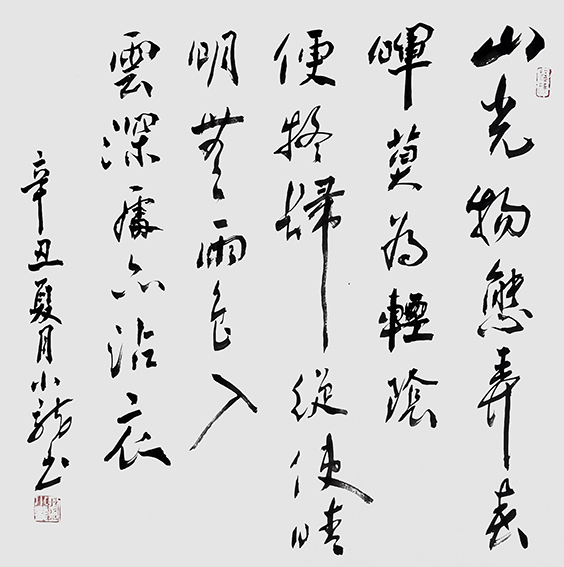 山光物態弄春
暉莫為輕陰
便擬歸縱使晴
明無雨色入
雲深處亦沾衣
辛丑夏月小龍書